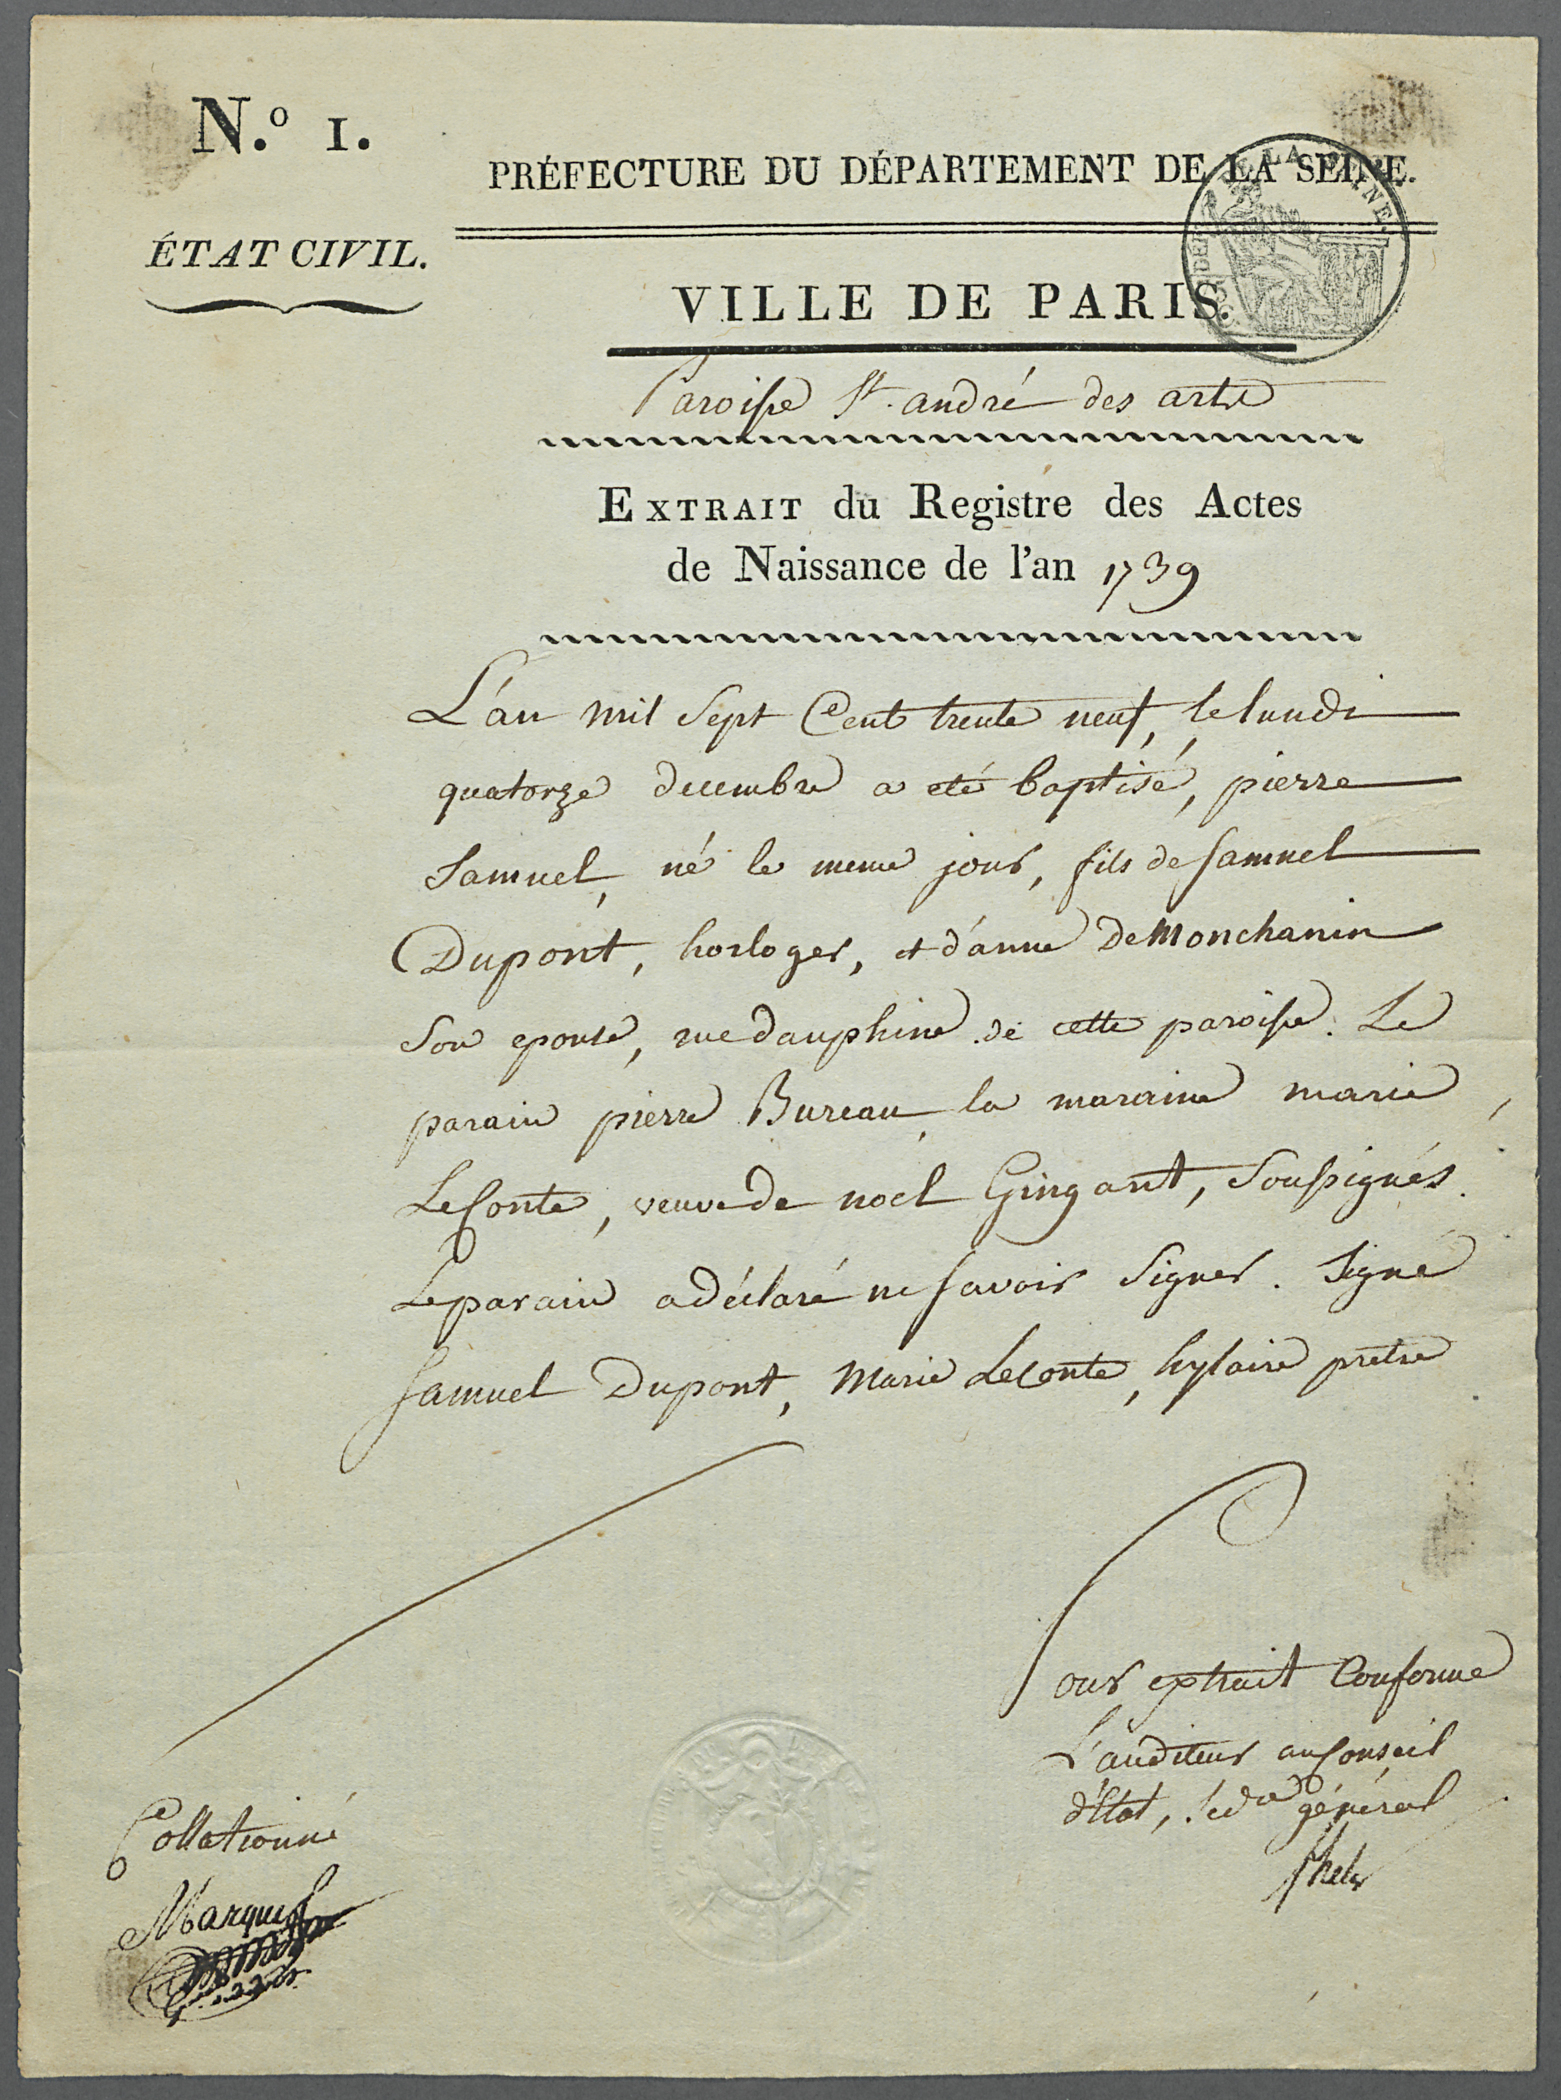 N.º 1.
PRÉFECTURE DU DÉPARTEMENT DE LA SEINE.
ÉTAT CIVIL.
VILLE DE PARIS.
Paroisse St. andré des arts
EXTRAIT du Registre des Actes
de Naissance de l'an 1739
L'an mil Sept Cent trente neuf, le lundi
quatorze decembre a eté baptisé, pierre
Samuel, né le meme jour, fils de Samuel
Dupont, horloger, et d'anne De Monchanin
Son epouse, rue dauphine de cette paroisse. Le
parain pierre Bureau, la maraine marie
LeConte, veuve de noel Gingant, Soussignés.
Le parain a déclaré ne savoir Signer. Signé
Samuel Dupont, Marie LeConte, hylaire pretre
Pour extrait Conforme
L'auditeur au Conseil
d'Etat, général
Collationné
Marquis